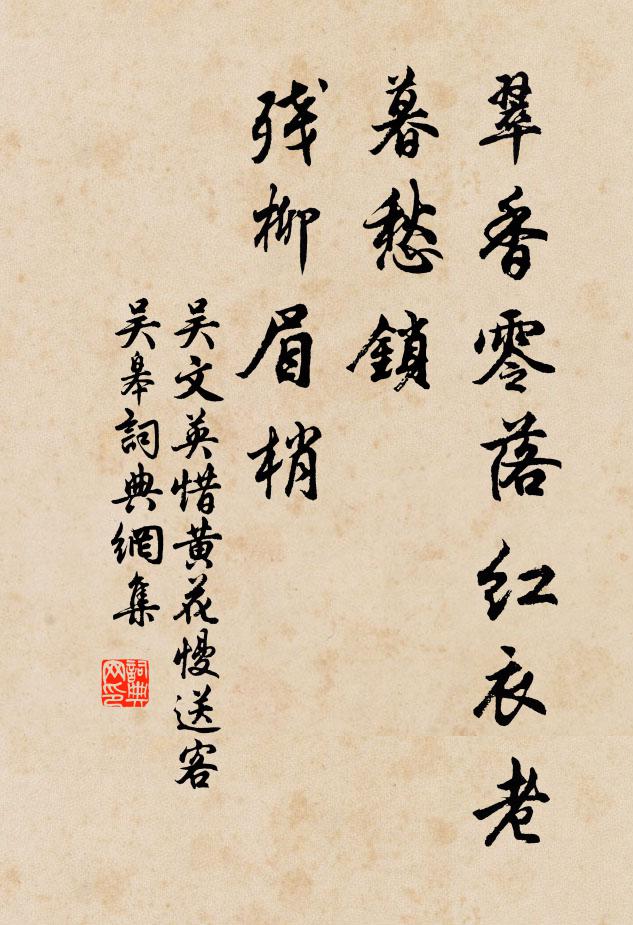 翠香零落紅衣老
暮愁鎖
殘柳眉梢
吴文英惜黄花慢送客
吴皋詞典網集
詞典網印